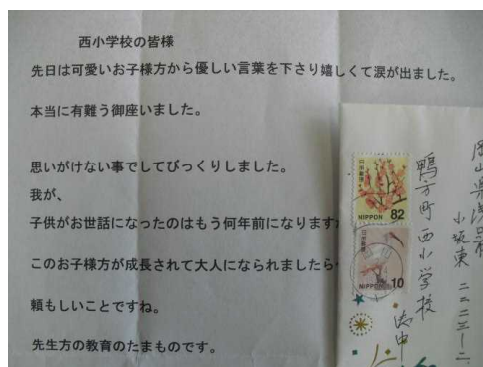 西小学校の皆様
先日は可愛いお子様方から優しい言葉を下さり嬉しくて涙が出ました。
本当に有難う御座いました。
思いがけない事でしてびっくりしました。
我が、
子供がお世話になったのはもう何年前になります
このお子様方が成長されて大人になられましたら
頼もしいことですね。
先生方の教育のたまものです。
日本郵便
NIPPON 82
日本郵便
NIPPON 10
小坂東 二二二三一二
鴨方町西小学校